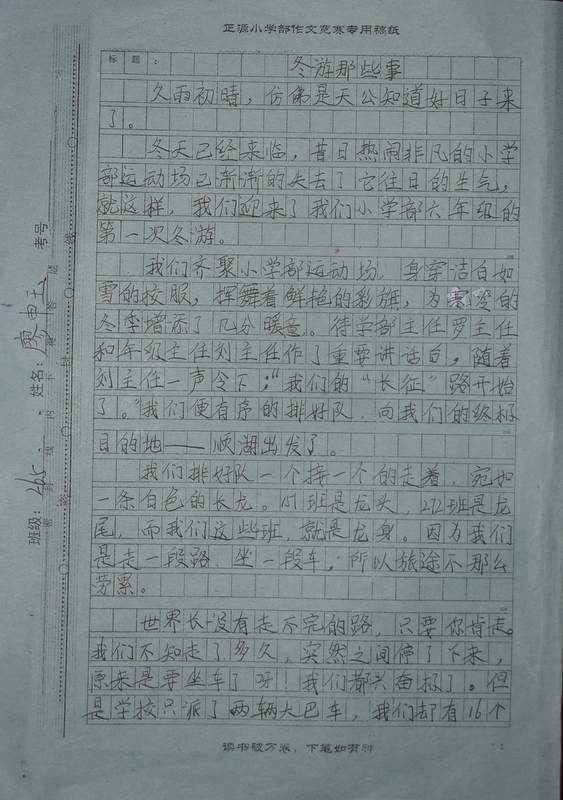 正源小学部作文竞赛专用稿纸
标 题：
冬游那些事
久雨初晴，仿佛是天公知道好日子来
了。
冬天已经来临，昔日热闹非凡的小学
部运动场已渐渐的失去了它往日的生气，
就这样，我们迎来了我们小学部六年级的
第一次冬游。
我们齐聚小学部运动场，身穿洁白如
雪的校服，挥舞着鲜艳的彩旗，为寒凌的
冬季增添了几分暖意。待学部主任罗主任
和年级主任刘主任作了重要讲话白，随着
刘主任一声令下；“我们的“长征”路开始
了。”我们便有序的排好队，向我们的终极
目的地——顺湖出发了。
我们排好队一个接一个的走着，宛如
一条白色的长龙。151班是龙头，272班是龙
尾，而我们这些班，就是龙身。因为我们
是走一段路、坐一段车，所以旅途不那么
劳累。
世界长没有走不完的路，只要你肯走。
我们不知走了多久，突然之间停了下来，
原来是要坐车了呀！我们都兴奋极了。但
是学校只派了两辆大巴车，我们却有16个
读书破万卷，下笔如有神
1
考号
姓名：
班级：265
密 封 线 内 不